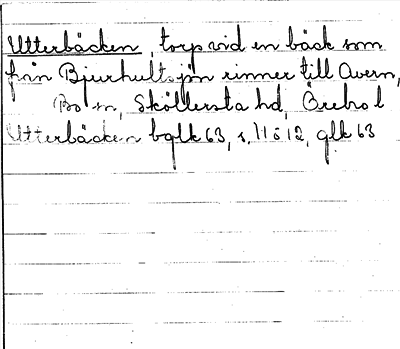 Utterbäcken, torp vid en bäck som
från Bjurhultssjön rinner till Avern,
Bo sn, Sköllersta hd, Örebro l
Utterbäcken bglk 63, s. 11 o 12, glk 63